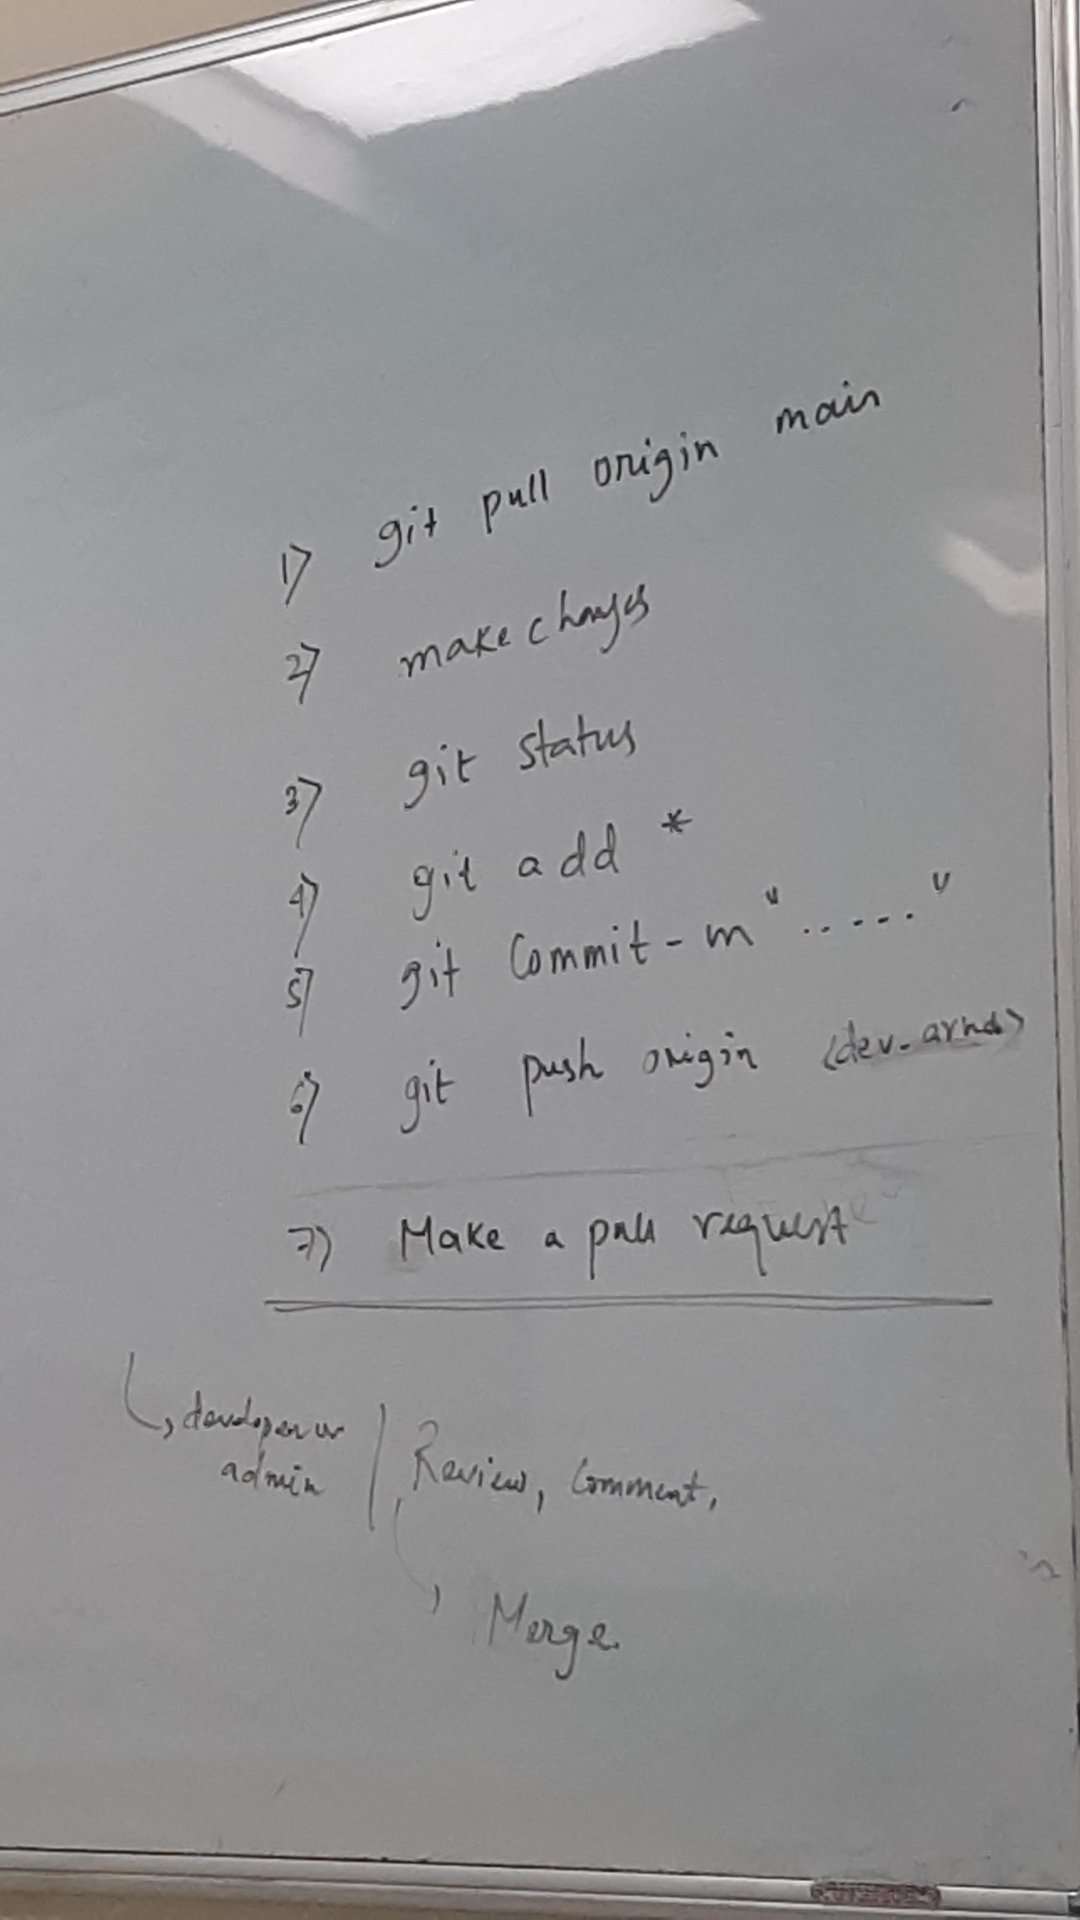 1) git pull origin main
2) make changes
3) git status
4) git add *
5) git Commit -m "....."
6) git push origin <dev-
7) Make a pull request
developer or
admin
Review, Comment,
Merge.